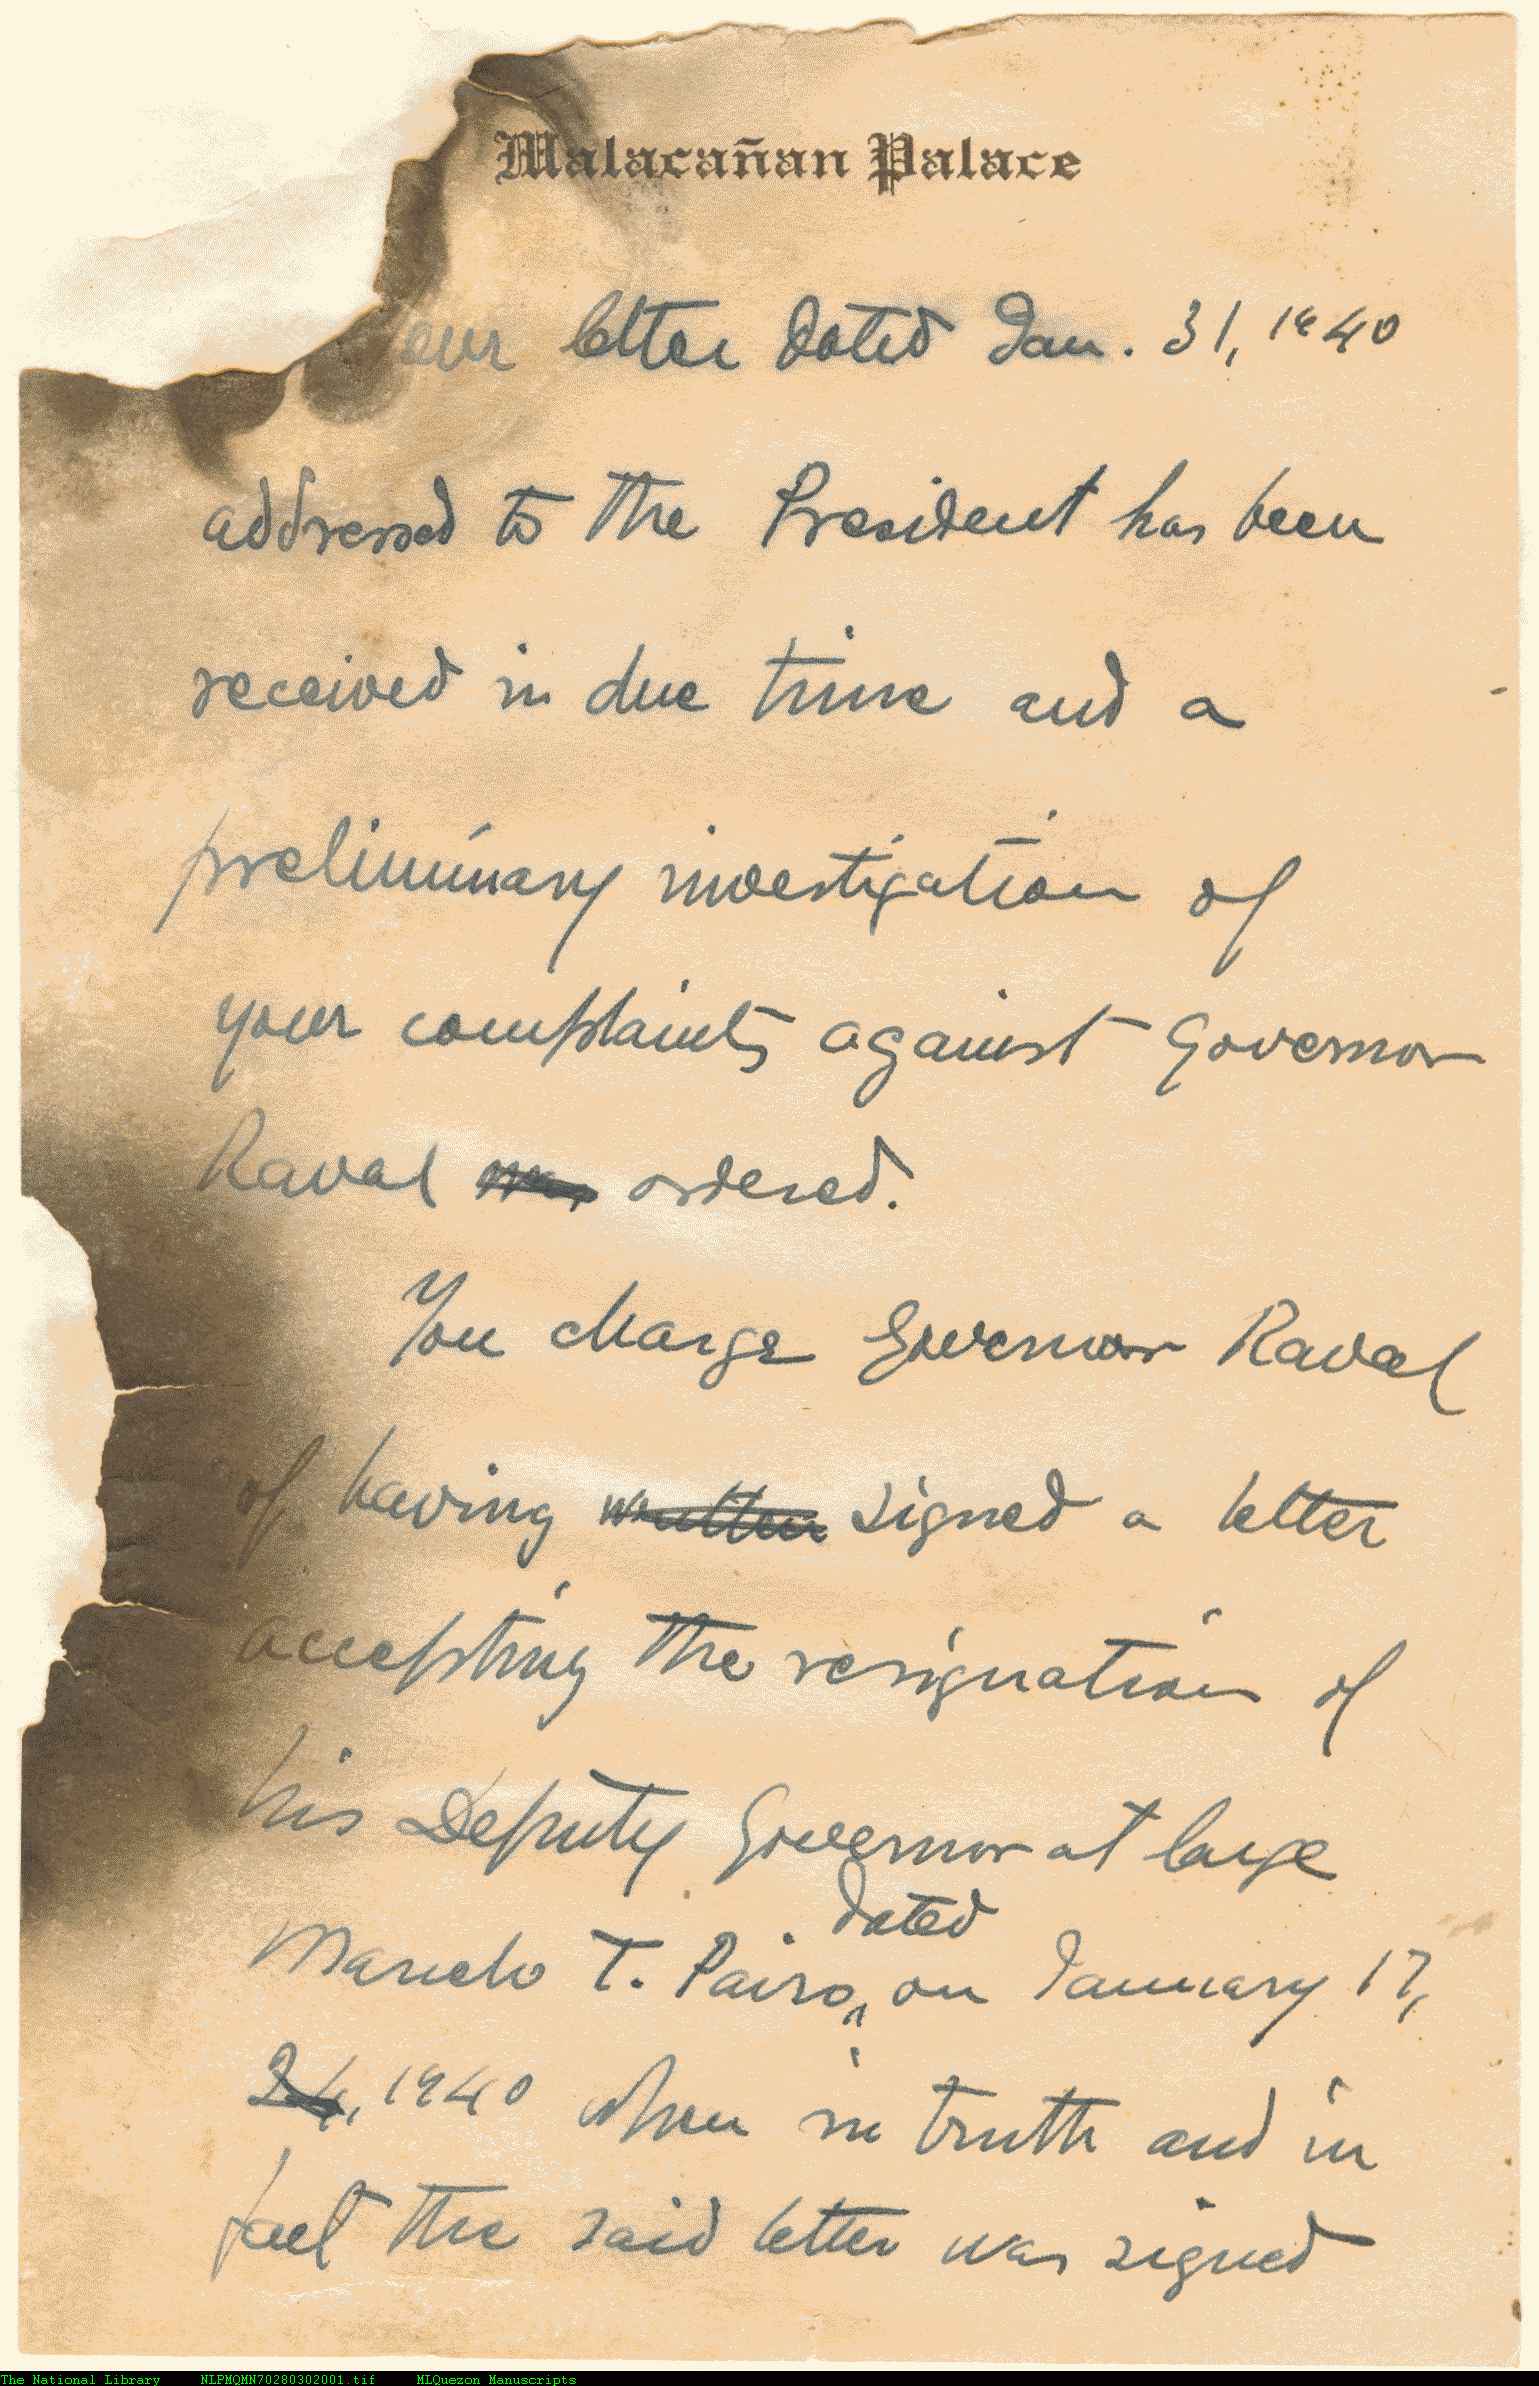 Malacañan Palace
our letter dated Jan. 31, 1940
addressed to the President has been
received in due time and a
preliminary investigation of
your complaints against Governor
Raval ordered.
You charge Governor Raval
of having written signed a letter
accepting the resignation of
his Deputy Governor at large
dated
Marcelo T. Pairo on January 17,
24, 1940 when in truth and in
fact the said letter was signed
The National Library NLPMQMN70280302001.tif MLQuezon Manuscripts